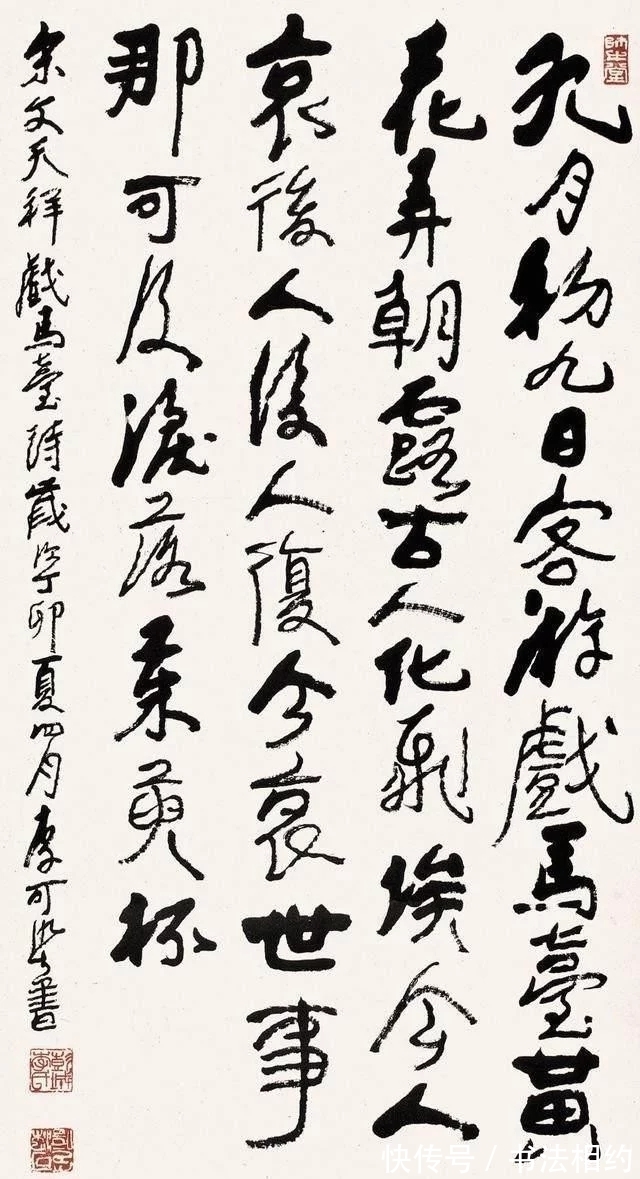 師牛堂
九月初九日客游戲馬臺黃
花弄朝露古人化飛埃今人
哀後人後人復今哀世事
那可及淚落茱萸杯
宋文天祥戲馬臺詩歲次丁卯夏四月李可染書
快传号 / 书法相约